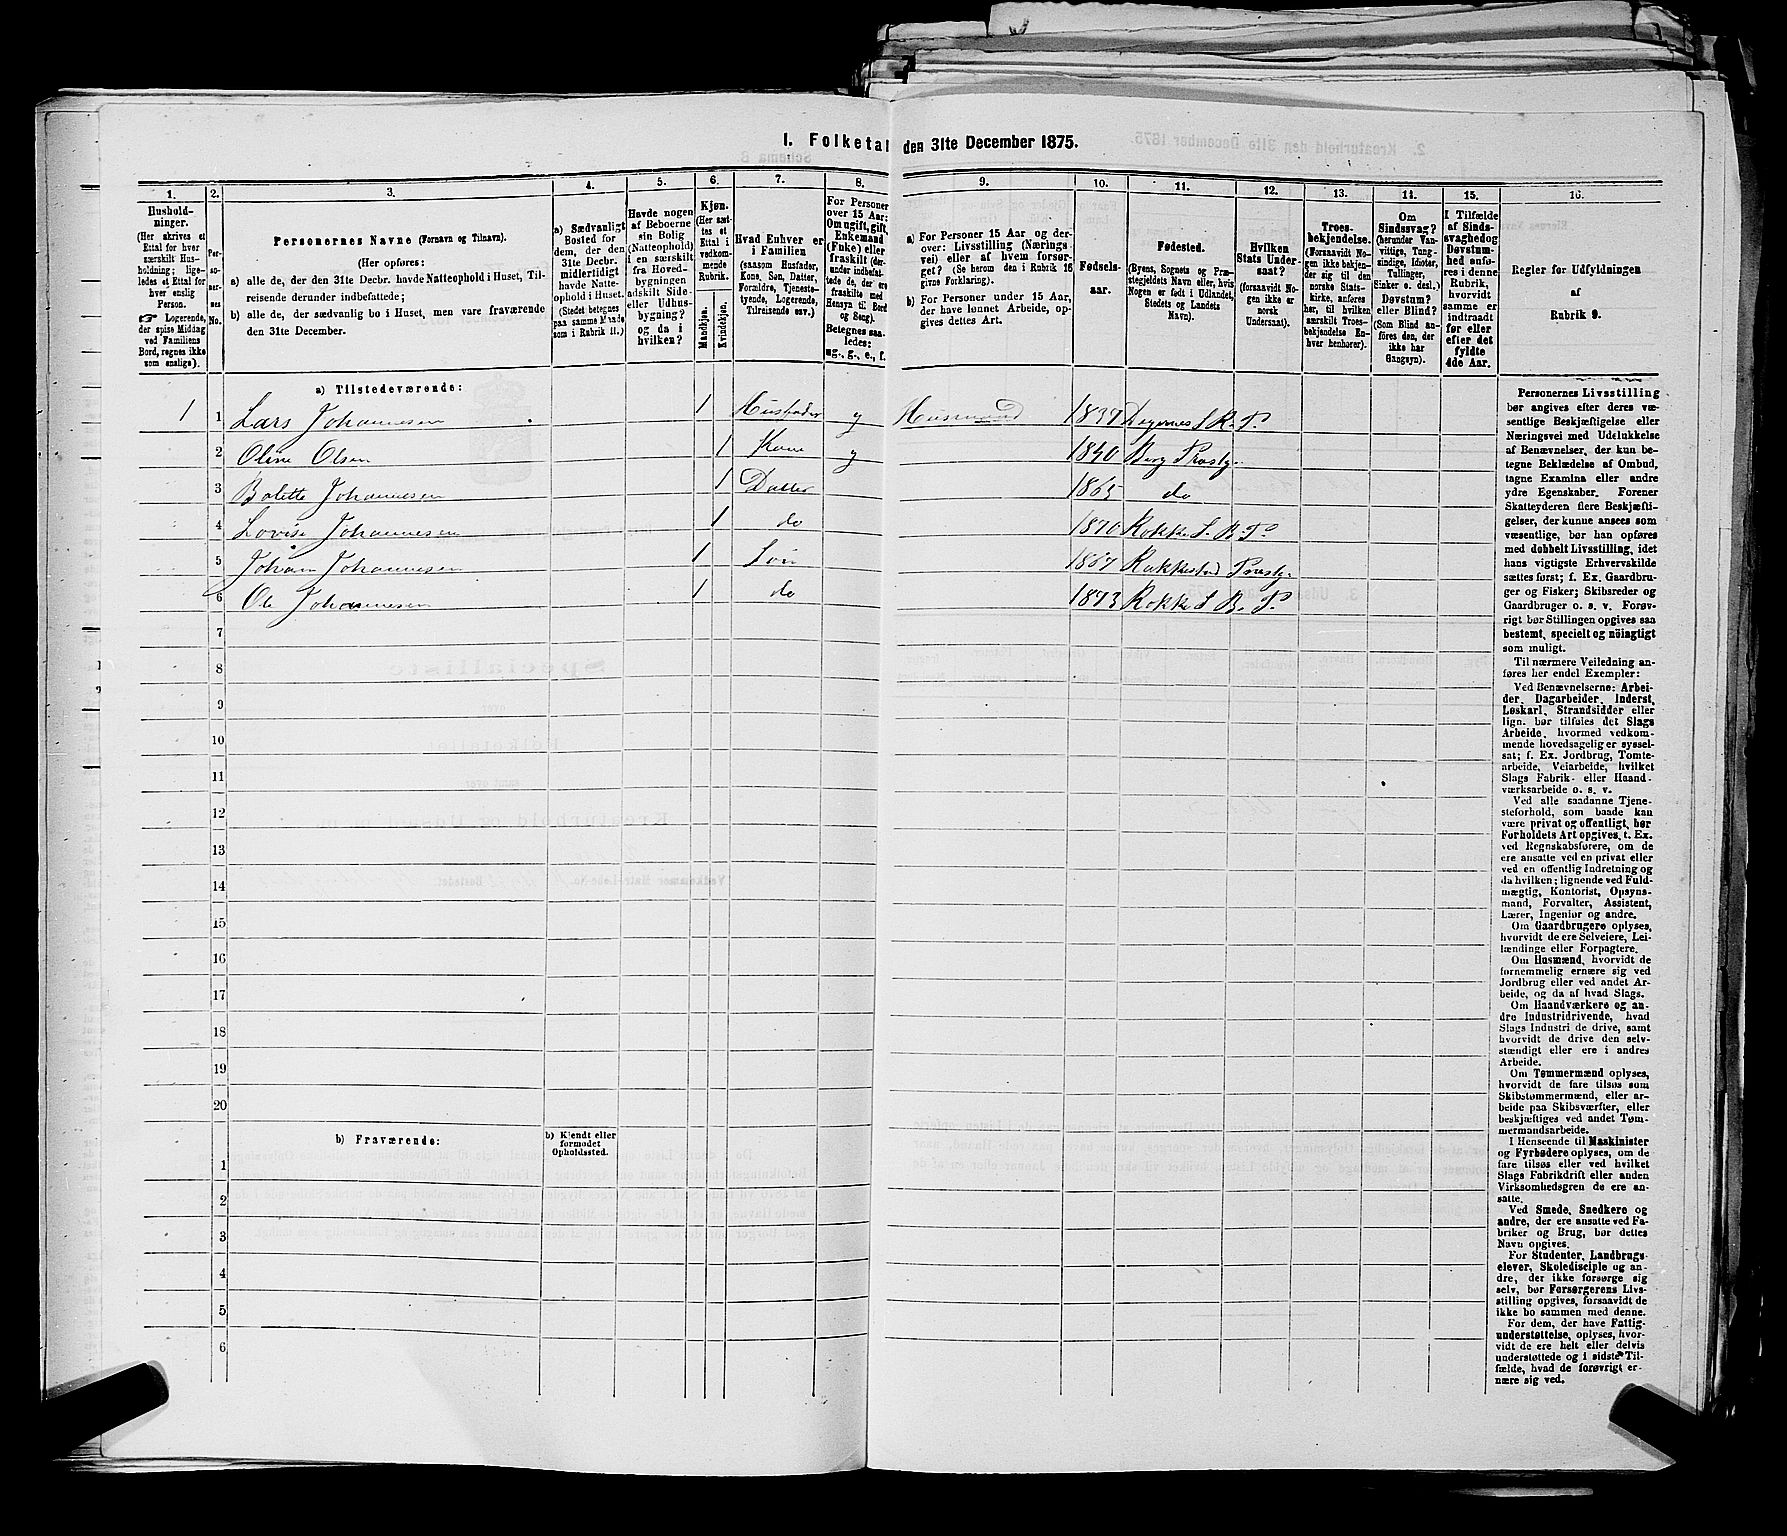 I. Folketal den 31te December 1875.
1. 2. 3. 4. 5. 6. 7. 8. 9. 10. 11. 12. 13. 14. 15. 16.
Hushold-
ninger.
(Her skrives et
Ettal for hver
særskilt Hus-
holdning; lige-
ledes et Ettal for
hver enslig
Person.
☞ Logerende,
der spise Middag
ved Familiens
Bord, regnes ikke
som enslige).
Per-
so-
ner-
nes
No.
Personernes Navne (Fornavn og Tilnavn).
(Her opføres:
a) alle de, der den 31te Decbr. havde Natteophold i Huset, Til-
reisende derunder indbefattede;
b) alle de, der sædvanlig bo i Huset, men vare fraværende
den 31te December.
a) Sædvanligt
Bosted for
dem, der den
31te Decbr.
midlertidigt
havde Natte-
ophold i Huset.
(Stedet betegnes
paa samme Maade
som i Rubrik 11.)
Havde nogen
af Beboerne
sin Bolig
(Natteophold)
i en særskilt
fra Hoved-
bygningen
adskilt Side-
eller Udhus-
bygning?
og da i
hvilken?
Kjøn.
(Her sæt-
tes et
Ettal i
vedkom-
mende
Rubrik.
Mandkjøn.
Kvindekjøn.
Hvad Enhver er
i Familien
(saasom Husfader,
Kone, Søn, Datter,
Forældre, Tjeneste-
tyende, Logerende,
Tilreisende osv.)
For Personer
over 15 Aar:
Om ugift, gift,
Enkemand
(Enke) eller
fraskilt (der-
under indbefat-
tede de, der ere
fraskilte med
Hensyn til Bord
og Seng).
Betegnes saa-
ledes:
ug., g., e., f.
a) For Personer 15 Aar og der-
over: Livsstilling (Nærings
vei) eller af hvem forsør-
get? (Se herom den i Rubrik 16
givne Forklaring).
b) For Personer under 15 Aar,
der have lønnet Arbeide, op-
gives dettes Art.
Fødsels-
aar.
Fødested.
(Byens, Sognets og Præ-
stegjeldets Navn eller, hvis
Nogen er født i Udlandet,
Stedets og Landets
Navn).
Hvilken
Stats Under-
saat?
(forsaavidt No-
gen ikke er
norsk
Undersaat).
Troes-
bekjendelse.
(Forsaavidt No-
gen ikke bekjen-
der sig til den
norske Stats-
kirke, anføres
her, til hvilken
særskilt Troes-
bekjendelse En-
hver henhører).
Om
Sindssvag?
(herunder Van-
vittige, Tung-
sindige, Idioter,
Tullinger,
Sinker o. desl.)
Døvstum?
eller Blind?
(Som Blind an-
føres den, der
ikke har
Gangsyn).
I Tilfælde
af Sinds-
svaghed og
Døvstum-
hed anfø-
res i denne
Rubrik,
hvorvidt
samme er
indtraadt
før eller
efter det
fyldte
4de Aar.
Regler for Udfyldningen
af
Rubrik 9.
a) Tilstedeværende:
1 1 Lars Johannesen 1 Husfader g Husmand 1837 Degernes S. R. P.
2 Oline Olsen 1 Kone g 1840 Berg Præstg.
3 Bolette Johannesen 1 Datter 1865 do
4 Lovise Johannesen 1 do 1870 Rokke S. B. P.
5 Johan Johannesen 1 Søn 1867 Rakkestad Præstg.
6 Ole Johannesen 1 do 1873 Rokke S. B. P.
7
8
9
10
11
12
13
14
15
16
17
18
19
20
b) Fraværende:
b) Kjendt eller
formodet
Opholdssted.
1
2
3
4
5
6
Personernes Livsstilling
bør angives efter deres væ-
sentlige Beskjæftigelse eller
Næringsvei med Udelukkelse
af Benævnelser, der kun be-
tegne Beklædelse af Ombud,
tagne Examina eller andre
ydre Egenskaber. Forener
Skatteyderen flere Beskjæfti-
gelser, der kunne ansees som
væsentlige, bør han opføres
med dobbelt Livsstilling, idet
hans vigtigste Erhvervskilde
sættes først; f. Ex. Gaardbru-
ger og Fisker; Skibsreder og
Gaardbruger o. s. v. Forøv-
rigt bør Stillingen opgives saa
bestemt, specielt og nöiagtigt
som muligt.
Til nærmere Veiledning an-
føres her endel Exempler:
Ved Benævnelserne: Arbei-
der, Dagarbeider, Inderst,
Løskarl, Strandsidder eller
lign. bør tilføies det Slags
Arbeide, hvormed vedkom-
mende hovedsagelig er syssel-
sat; f. Ex. Jordbrug, Tomte-
arbeide, Veiarbeide, hvilket
Slags Fabrik- eller Haand-
værksarbeide o. s. v.
Ved alle saadanne Tjene-
steforhold, som baade kan
være privat og offentligt, bør
Forholdets Art opgives, t. Ex.
ved Regnskabsførere, om de
ere ansatte ved en privat eller
ved en offentlig Indretning og
da hvilken; lignende ved Fuld-
mægtig, Kontorist, Opsyns-
mand, Forvalter, Assistent,
Lærer, Ingeniør og andre.
Om Gaardbrugere oplyses,
hvorvidt de ere Selveiere, Lei-
lændinge eller Forpagtere.
Om Husmænd, hvorvidt de
fornemmelig ernære sig ved
Jordbrug eller ved andet Ar-
beide, og da af hvad Slags.
Om Haandværkere og an-
dre Industridrivende, hvad
Slags Industri de drive, samt
hvorvidt de drive den selv-
stændigt eller ere i andres
Arbeide.
Om Tømmermænd oplyses,
hvorvidt de fare tilsøs som
Skibstømmermænd, eller ar-
beide paa Skibsværfter, eller
beskjæftiges ved andet Tøm-
mermandsarbeide.
I Henseende til Maskinister
og Fyrbødere oplyses, om de
fare tilsøs eller ved hvilket
Slags Fabrikdrift eller anden
Virksomhedsgren de ere an-
satte.
Ved Smede, Snedkere og
andre, der ere ansatte ved Fa-
briker og Brug, bør dettes
Navn opgives.
For Studenter, Landbrugs-
elever, Skoledisciple og an-
dre, der ikke forsørge sig
selv, bør Forsørgerens Livs-
stilling opgives, forsaavidt de
ikke bo sammen med denne.
For dem, der have Fattig-
understøttelse, oplyses, hvor-
vidt de ere helt eller delvis
understøttede og i sidste Til-
fælde, hvad de forøvrigt er-
nære sig ved.